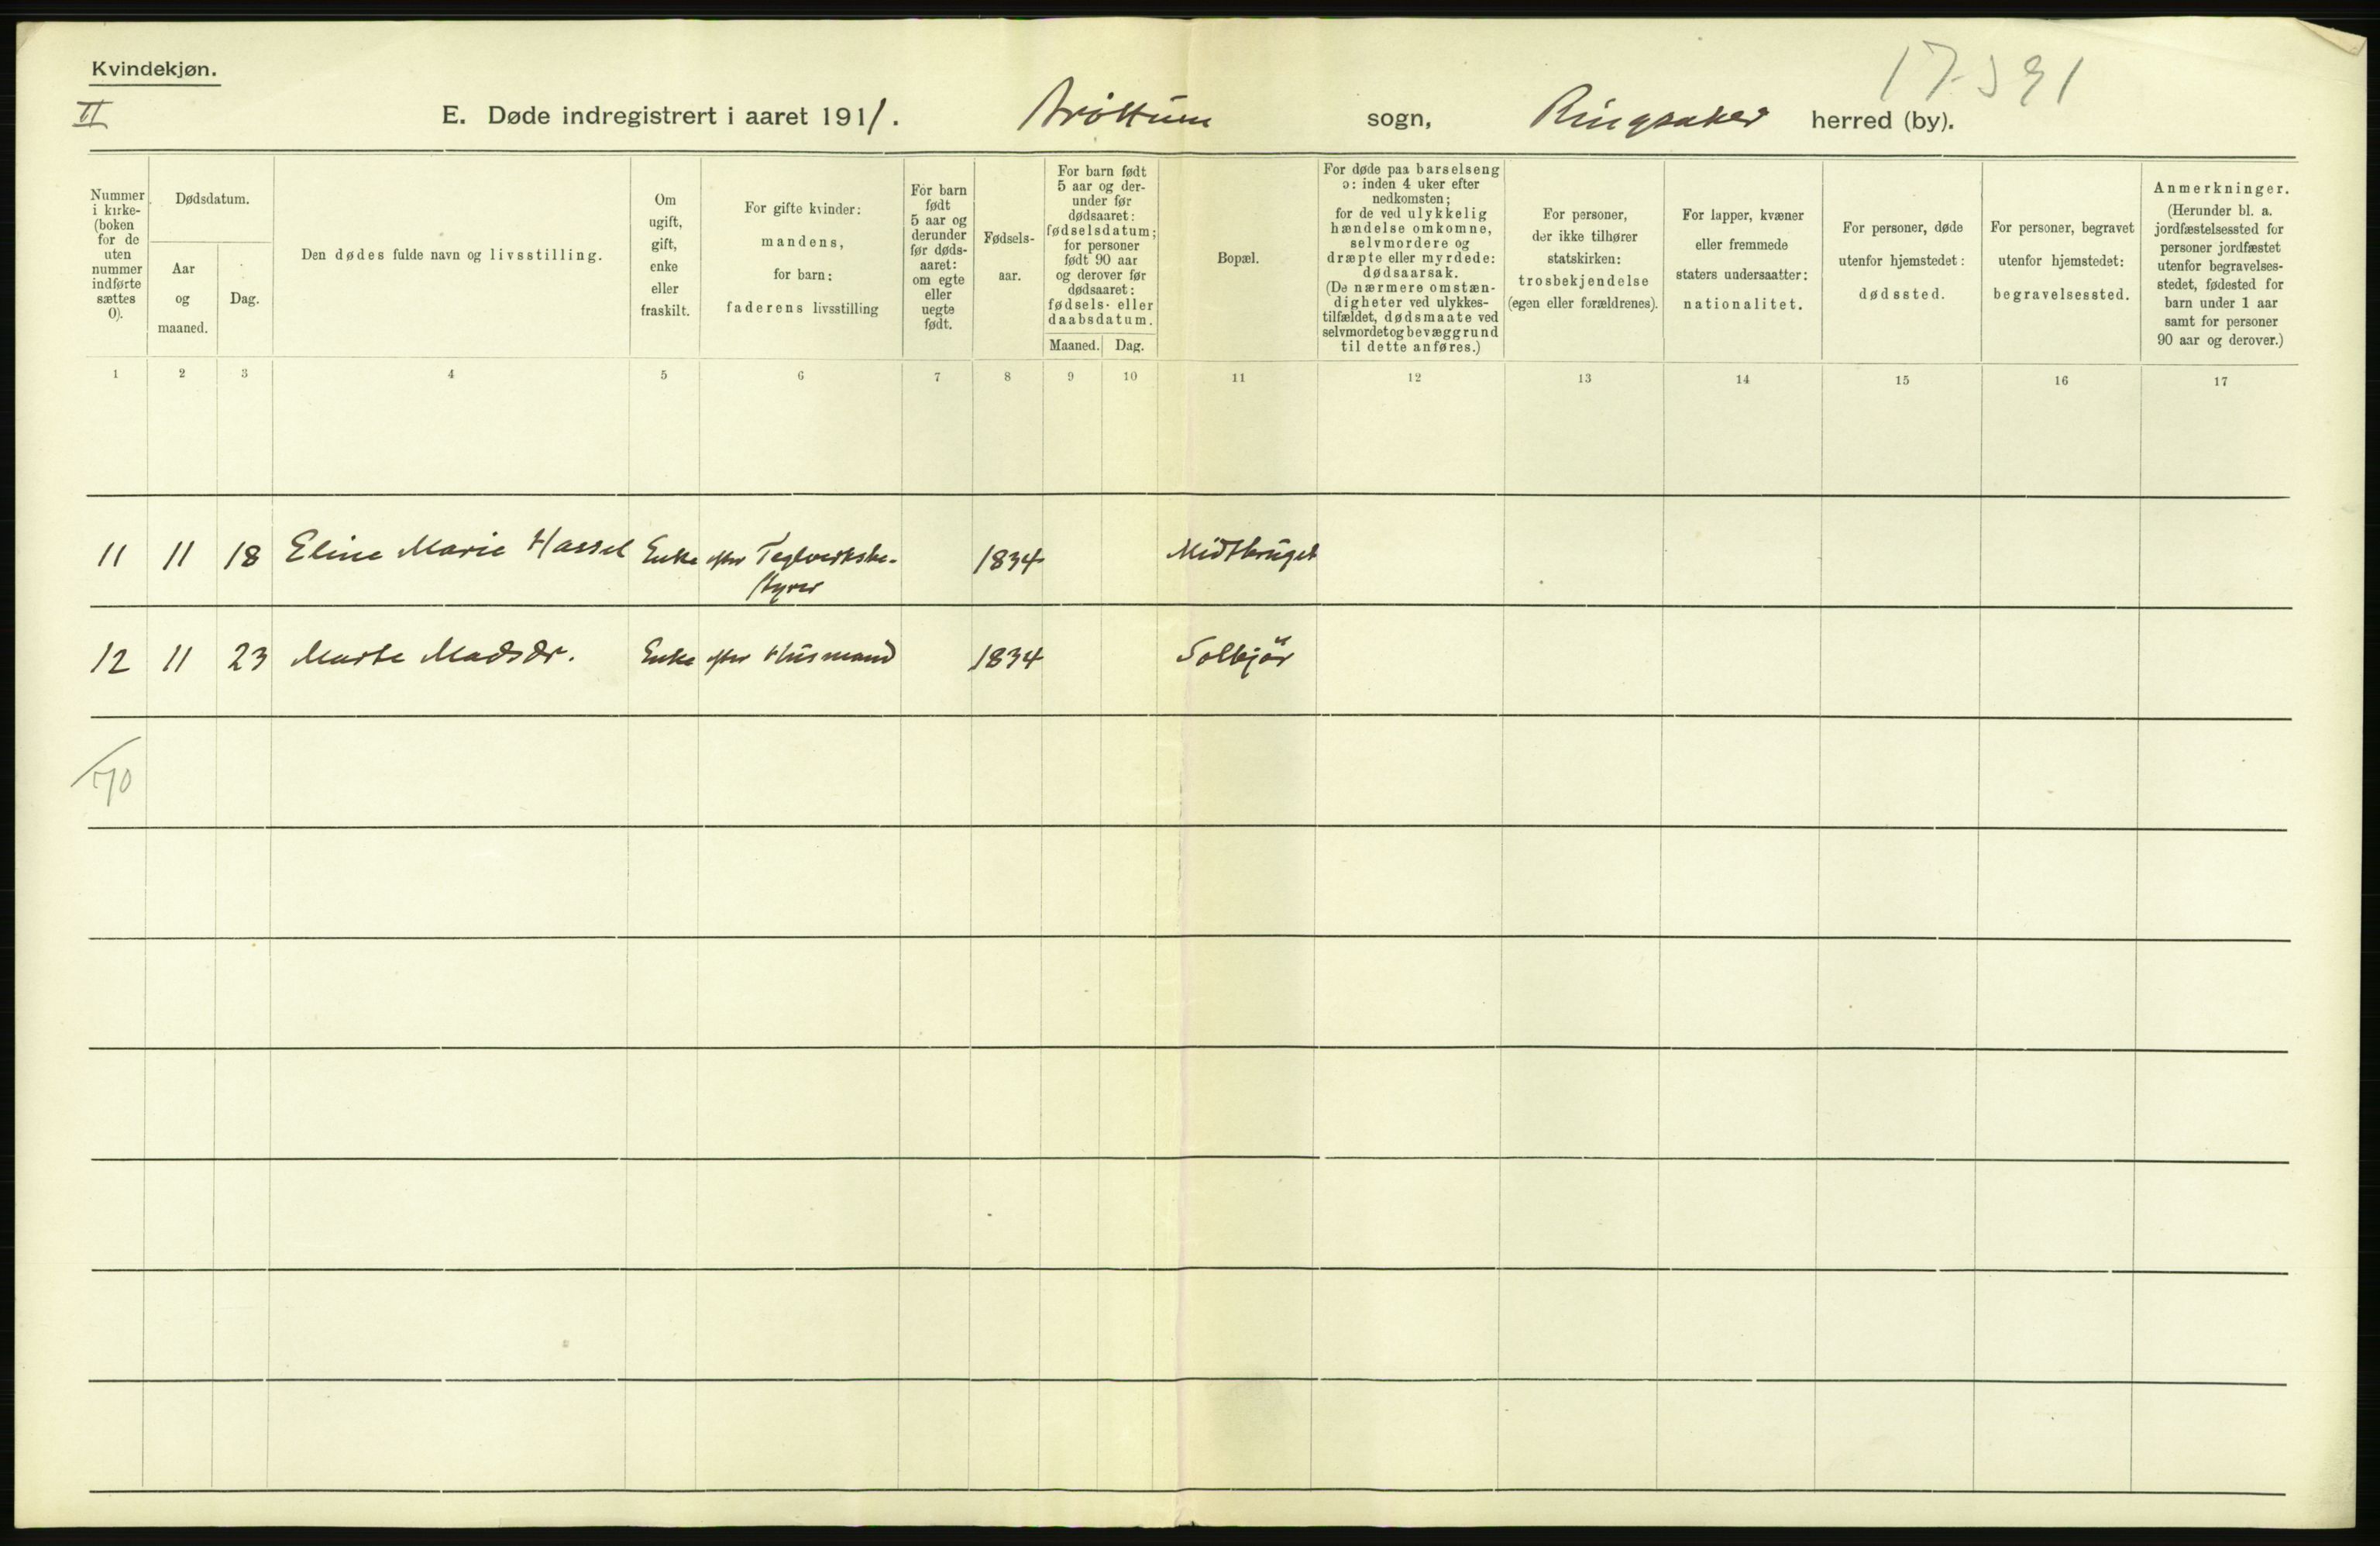 Kvindekjøn.
II
17-391
E. Døde indregistrert i aaret 1911. Brøttum sogn, Ringsaker herred (by).
Nummer i kirke- (boken for de uten nummer indførte sættes 0).
Dødsdatum.
Aar og maaned.
Dag.
Den dødes fulde navn og livsstilling.
Om ugift, gift, enke eller fraskilt.
For gifte kvinder: mandens, for barn: faderens livsstilling
For barn født 5 aar og derunder før døds- aaret: om egte eller uegte født.
Fødsels- aar.
For barn født 5 aar og der- under før dødsaaret: fødselsdatum; for personer født 90 aar og derover før dødsaaret: fødsels- eller daabsdatum.
Maaned. Dag.
Bopæl.
For døde paa barselseng ɔ: inden 4 uker efter nedkomsten; for de ved ulykkelig hændelse omkomne, selvmordere og dræpte eller myrdede: dødsaarsak. (De nærmere omstæn- digheter ved ulykkes- tilfældet, dødsmaate ved selvmordet og bevæggrund til dette anføres.)
For personer, der ikke tilhører statskirken: trosbekjendelse (egen eller forældrenes).
For lapper, kvæner eller fremmede staters undersaatter: nationalitet.
For personer, døde utenfor hjemstedet: dødssted.
For personer, begravet utenfor hjemstedet: begravelsessted.
Anmerkninger. (Herunder bl. a. jordfæstelsessted for personer jordfæstet utenfor begravelses- stedet, fødested for barn under 1 aar samt for personer 90 aar og derover.)
1 2 3 4 5 6 7 8 9 10 11 12 13 14 15 16 17
11 11 18 Eline Marie Hassel Enke efter Teglverksbe- 1834 Midtbruget
styrer
12 11 23 Marte Madsdr. Enke efter Husmand 1834 Solbjør